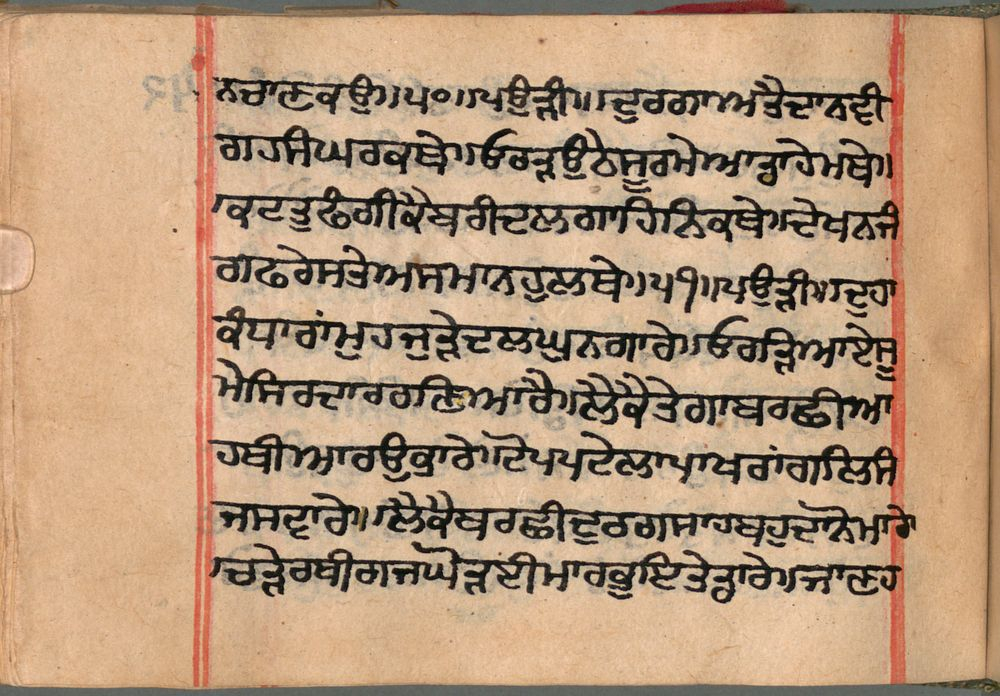 ਨਚਾਣਕਉ॥੫੦॥ਪਉੜੀ॥ਦੁਰਗਾਅਤੈਦਾਨਵੀ
ਗਹਸੰਘਰਕਥੇ॥ਓਰੜਉਠੇਸੂਰਮੇਆਡਾਹੇਮਥੇ॥
ਕਟਤੁਫੰਗੀਕੈਬਰੀਦਲਗਾਹਿਨਿਕਥੇ॥ਦੇਖਨਜੰ
ਗਫਰੇਸਤੇਅਸਮਾਨਹੁਲਥੇ॥੫੧॥ਪਉੜੀ॥ਦੁਹਾ
ਕੰਧਾਰਾਂਮੁਹਜੁੜੇਦਲਘੁਨਗਾਰੇ॥ਓਰੜਿਆਏਸੂ
ਮੈਸਿਰਦਾਰਰਣਿਆਰੈ॥ਲੈਕੈਤੇਗਾਬਰਛੀਆ
ਹਥੀਆਰਉਭਾਰੇ॥ਟੋਪਪਟੇਲਾਪਾਖਰਾਂਗਲਿਸੰ
ਜਸਵਾਰੇ॥ਲੈਕੈਬਰਛੀਦੁਰਗਸਾਹਬਹੁਦਾਨੋਮਾਰੇ
ਚੜੇਰਥੀਗਜਘੋੜਈਮਾਰਭੁਇਤੇਡਾਰੇ॥ਜਾਣਹ